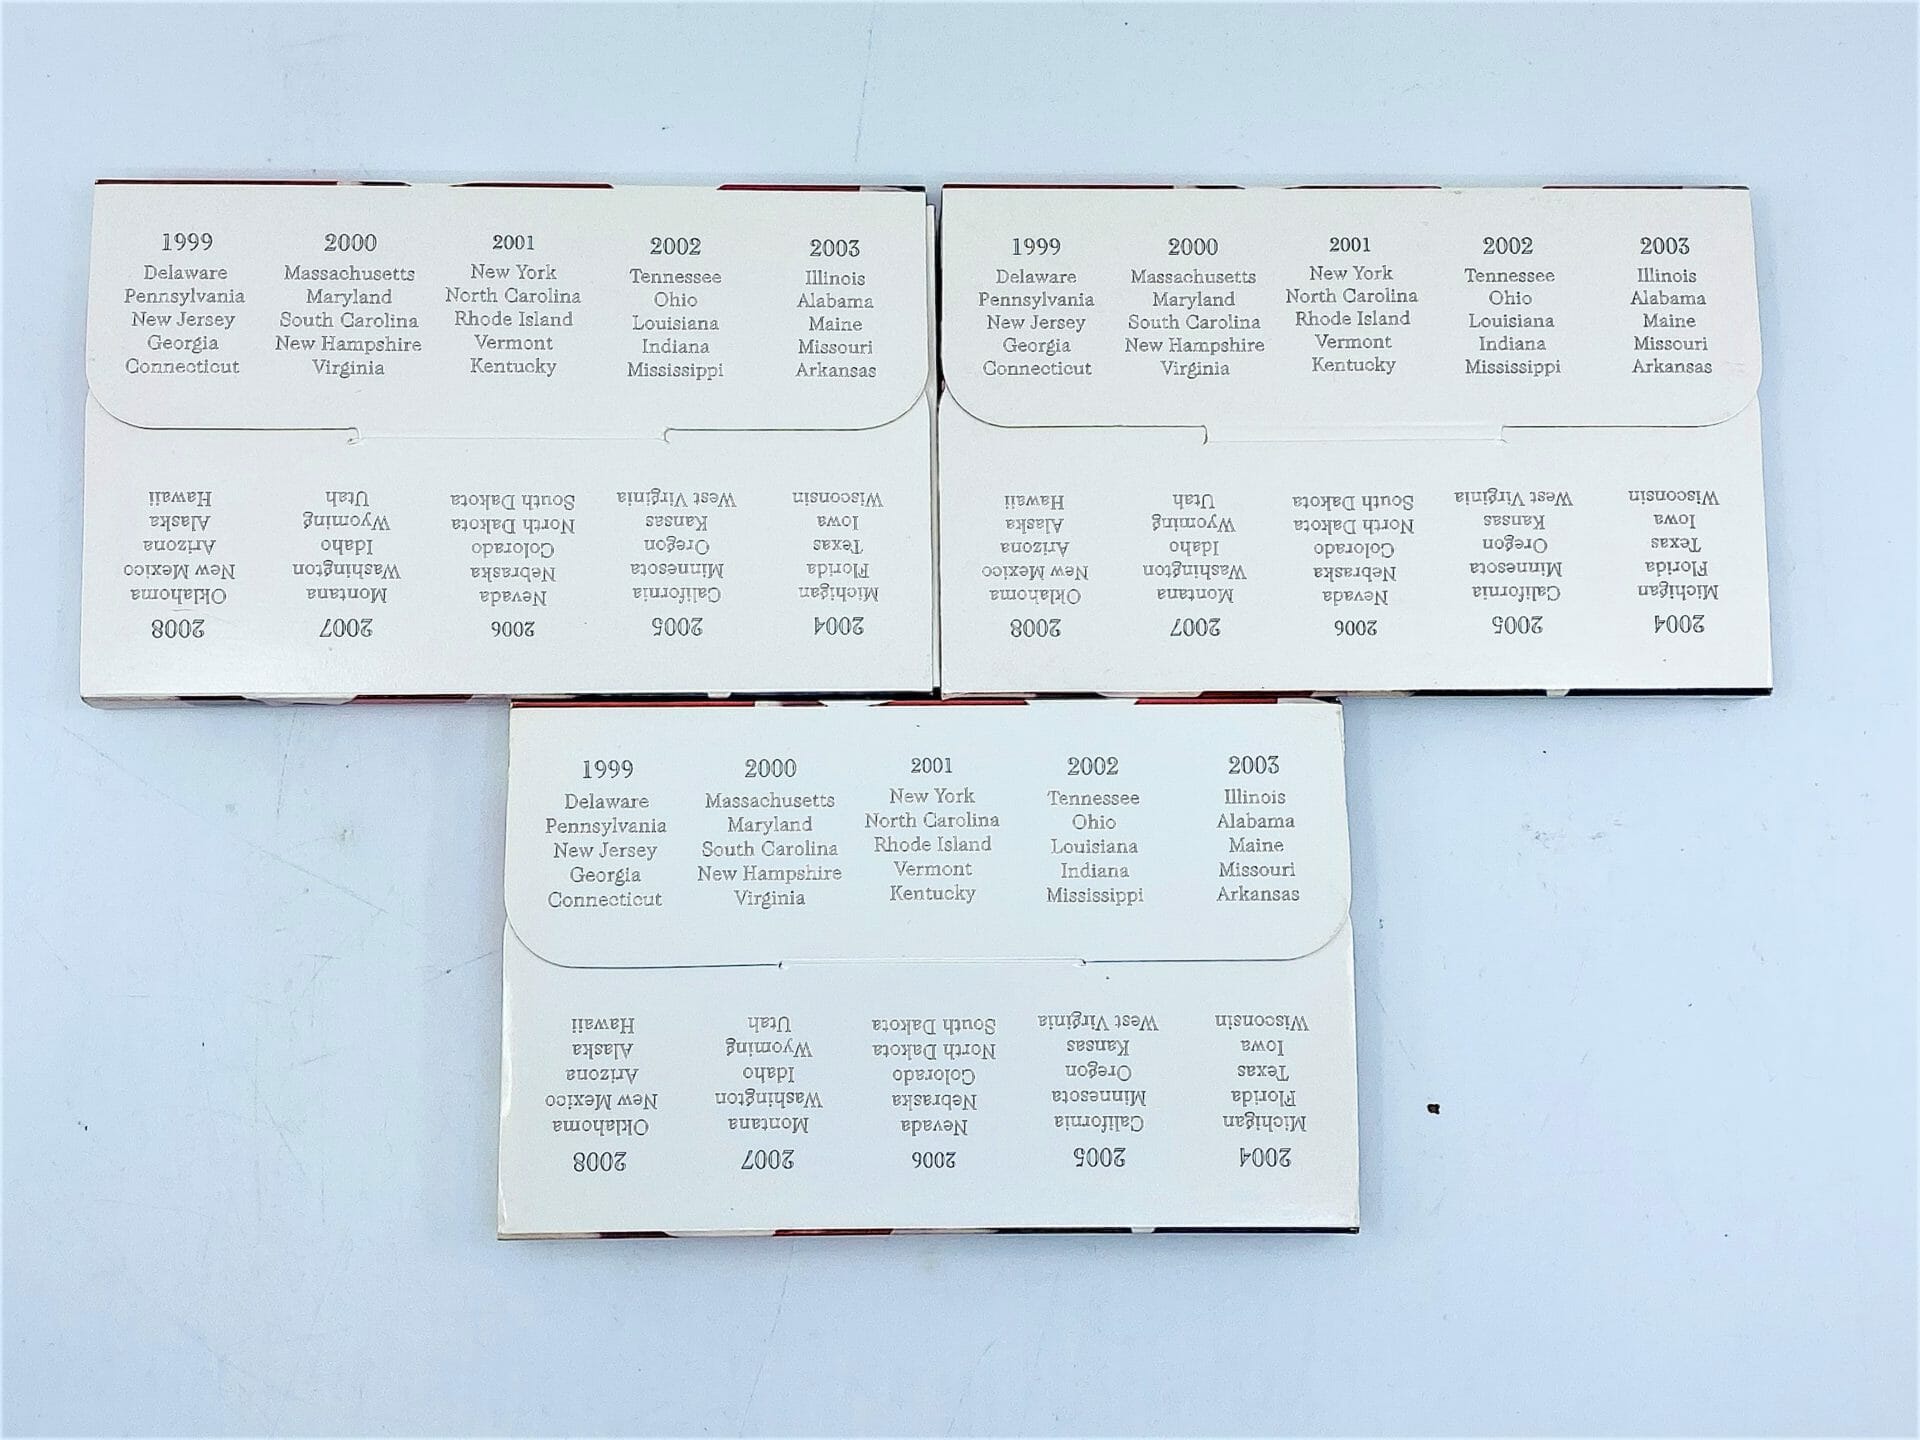 1999
Delaware
Pennsylvania
New Jersey
Georgia
Connecticut
2000
Massachusetts
Maryland
South Carolina
New Hampshire
Virginia
2001
New York
North Carolina
Rhode Island
Vermont
Kentucky
2002
Tennessee
Ohio
Louisiana
Indiana
Mississippi
2003
Illinois
Alabama
Maine
Missouri
Arkansas
2004
Michigan
Florida
Texas
Iowa
Wisconsin
2005
California
Minnesota
Oregon
Kansas
West Virginia
2006
Nevada
Nebraska
Colorado
North Dakota
South Dakota
2007
Montana
Washington
Idaho
Wyoming
Utah
2008
Oklahoma
New Mexico
Arizona
Alaska
Hawaii
1999
Delaware
Pennsylvania
New Jersey
Georgia
Connecticut
2000
Massachusetts
Maryland
South Carolina
New Hampshire
Virginia
2001
New York
North Carolina
Rhode Island
Vermont
Kentucky
2002
Tennessee
Ohio
Louisiana
Indiana
Mississippi
2003
Illinois
Alabama
Maine
Missouri
Arkansas
2004
Michigan
Florida
Texas
Iowa
Wisconsin
2005
California
Minnesota
Oregon
Kansas
West Virginia
2006
Nevada
Nebraska
Colorado
North Dakota
South Dakota
2007
Montana
Washington
Idaho
Wyoming
Utah
2008
Oklahoma
New Mexico
Arizona
Alaska
Hawaii
1999
Delaware
Pennsylvania
New Jersey
Georgia
Connecticut
2000
Massachusetts
Maryland
South Carolina
New Hampshire
Virginia
2001
New York
North Carolina
Rhode Island
Vermont
Kentucky
2002
Tennessee
Ohio
Louisiana
Indiana
Mississippi
2003
Illinois
Alabama
Maine
Missouri
Arkansas
2004
Michigan
Florida
Texas
Iowa
Wisconsin
2005
California
Minnesota
Oregon
Kansas
West Virginia
2006
Nevada
Nebraska
Colorado
North Dakota
South Dakota
2007
Montana
Washington
Idaho
Wyoming
Utah
2008
Oklahoma
New Mexico
Arizona
Alaska
Hawaii